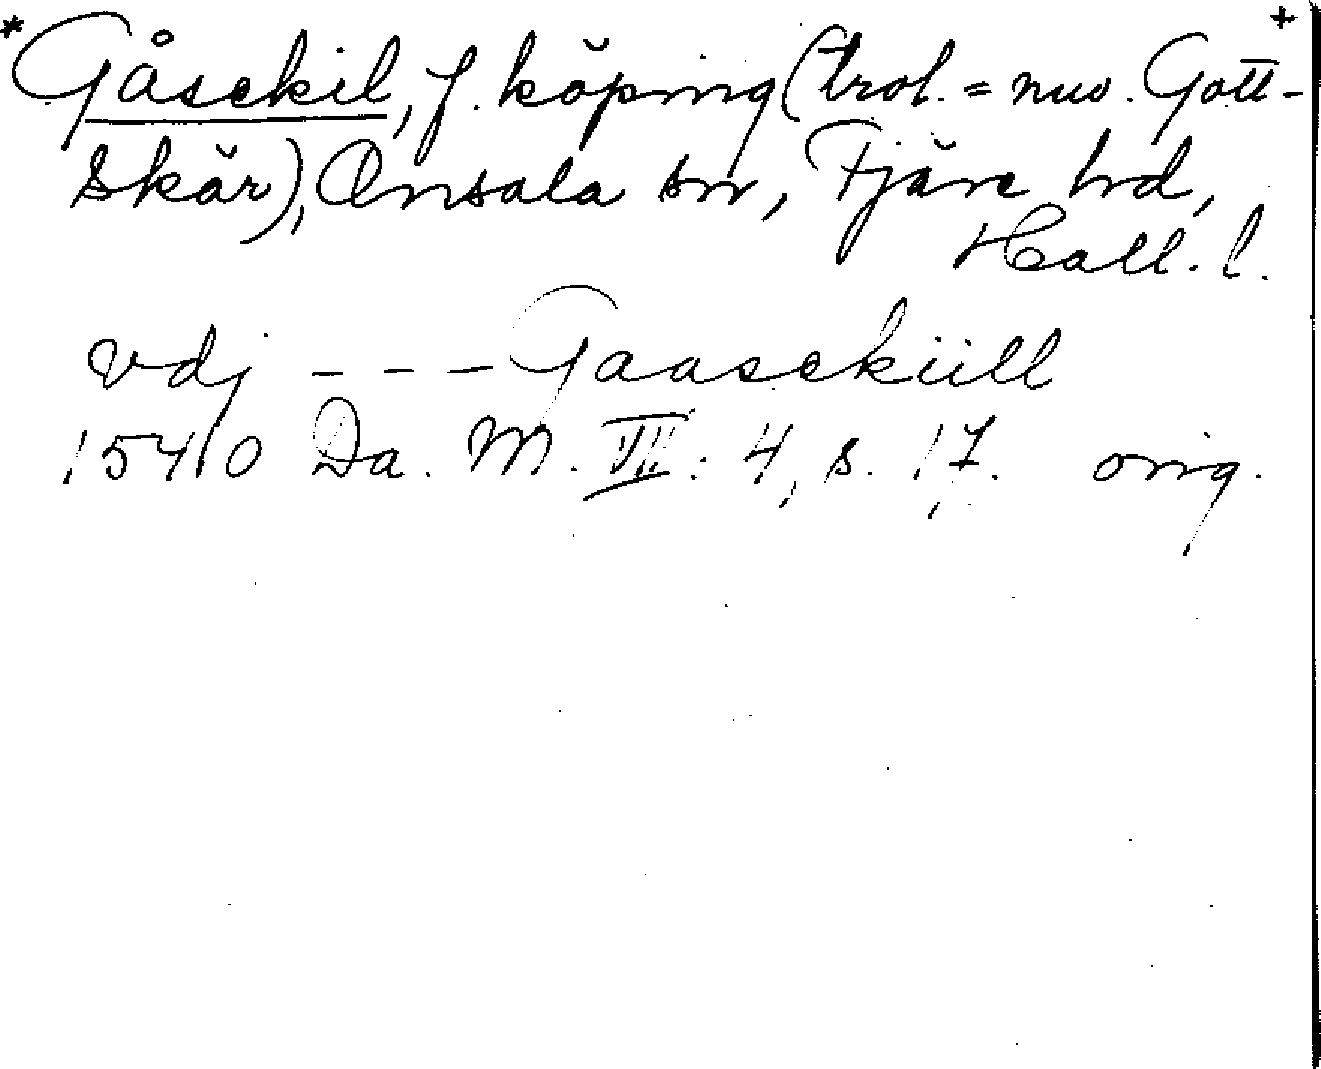 *Gåsekil, f. köping (trol. = nuv. Gott- +
skär), Onsala sn, Fjäre hd,
Hall. l.
vdj - - - Gaasekiill
1540 Da. M. III: 4, s. 17. orig.